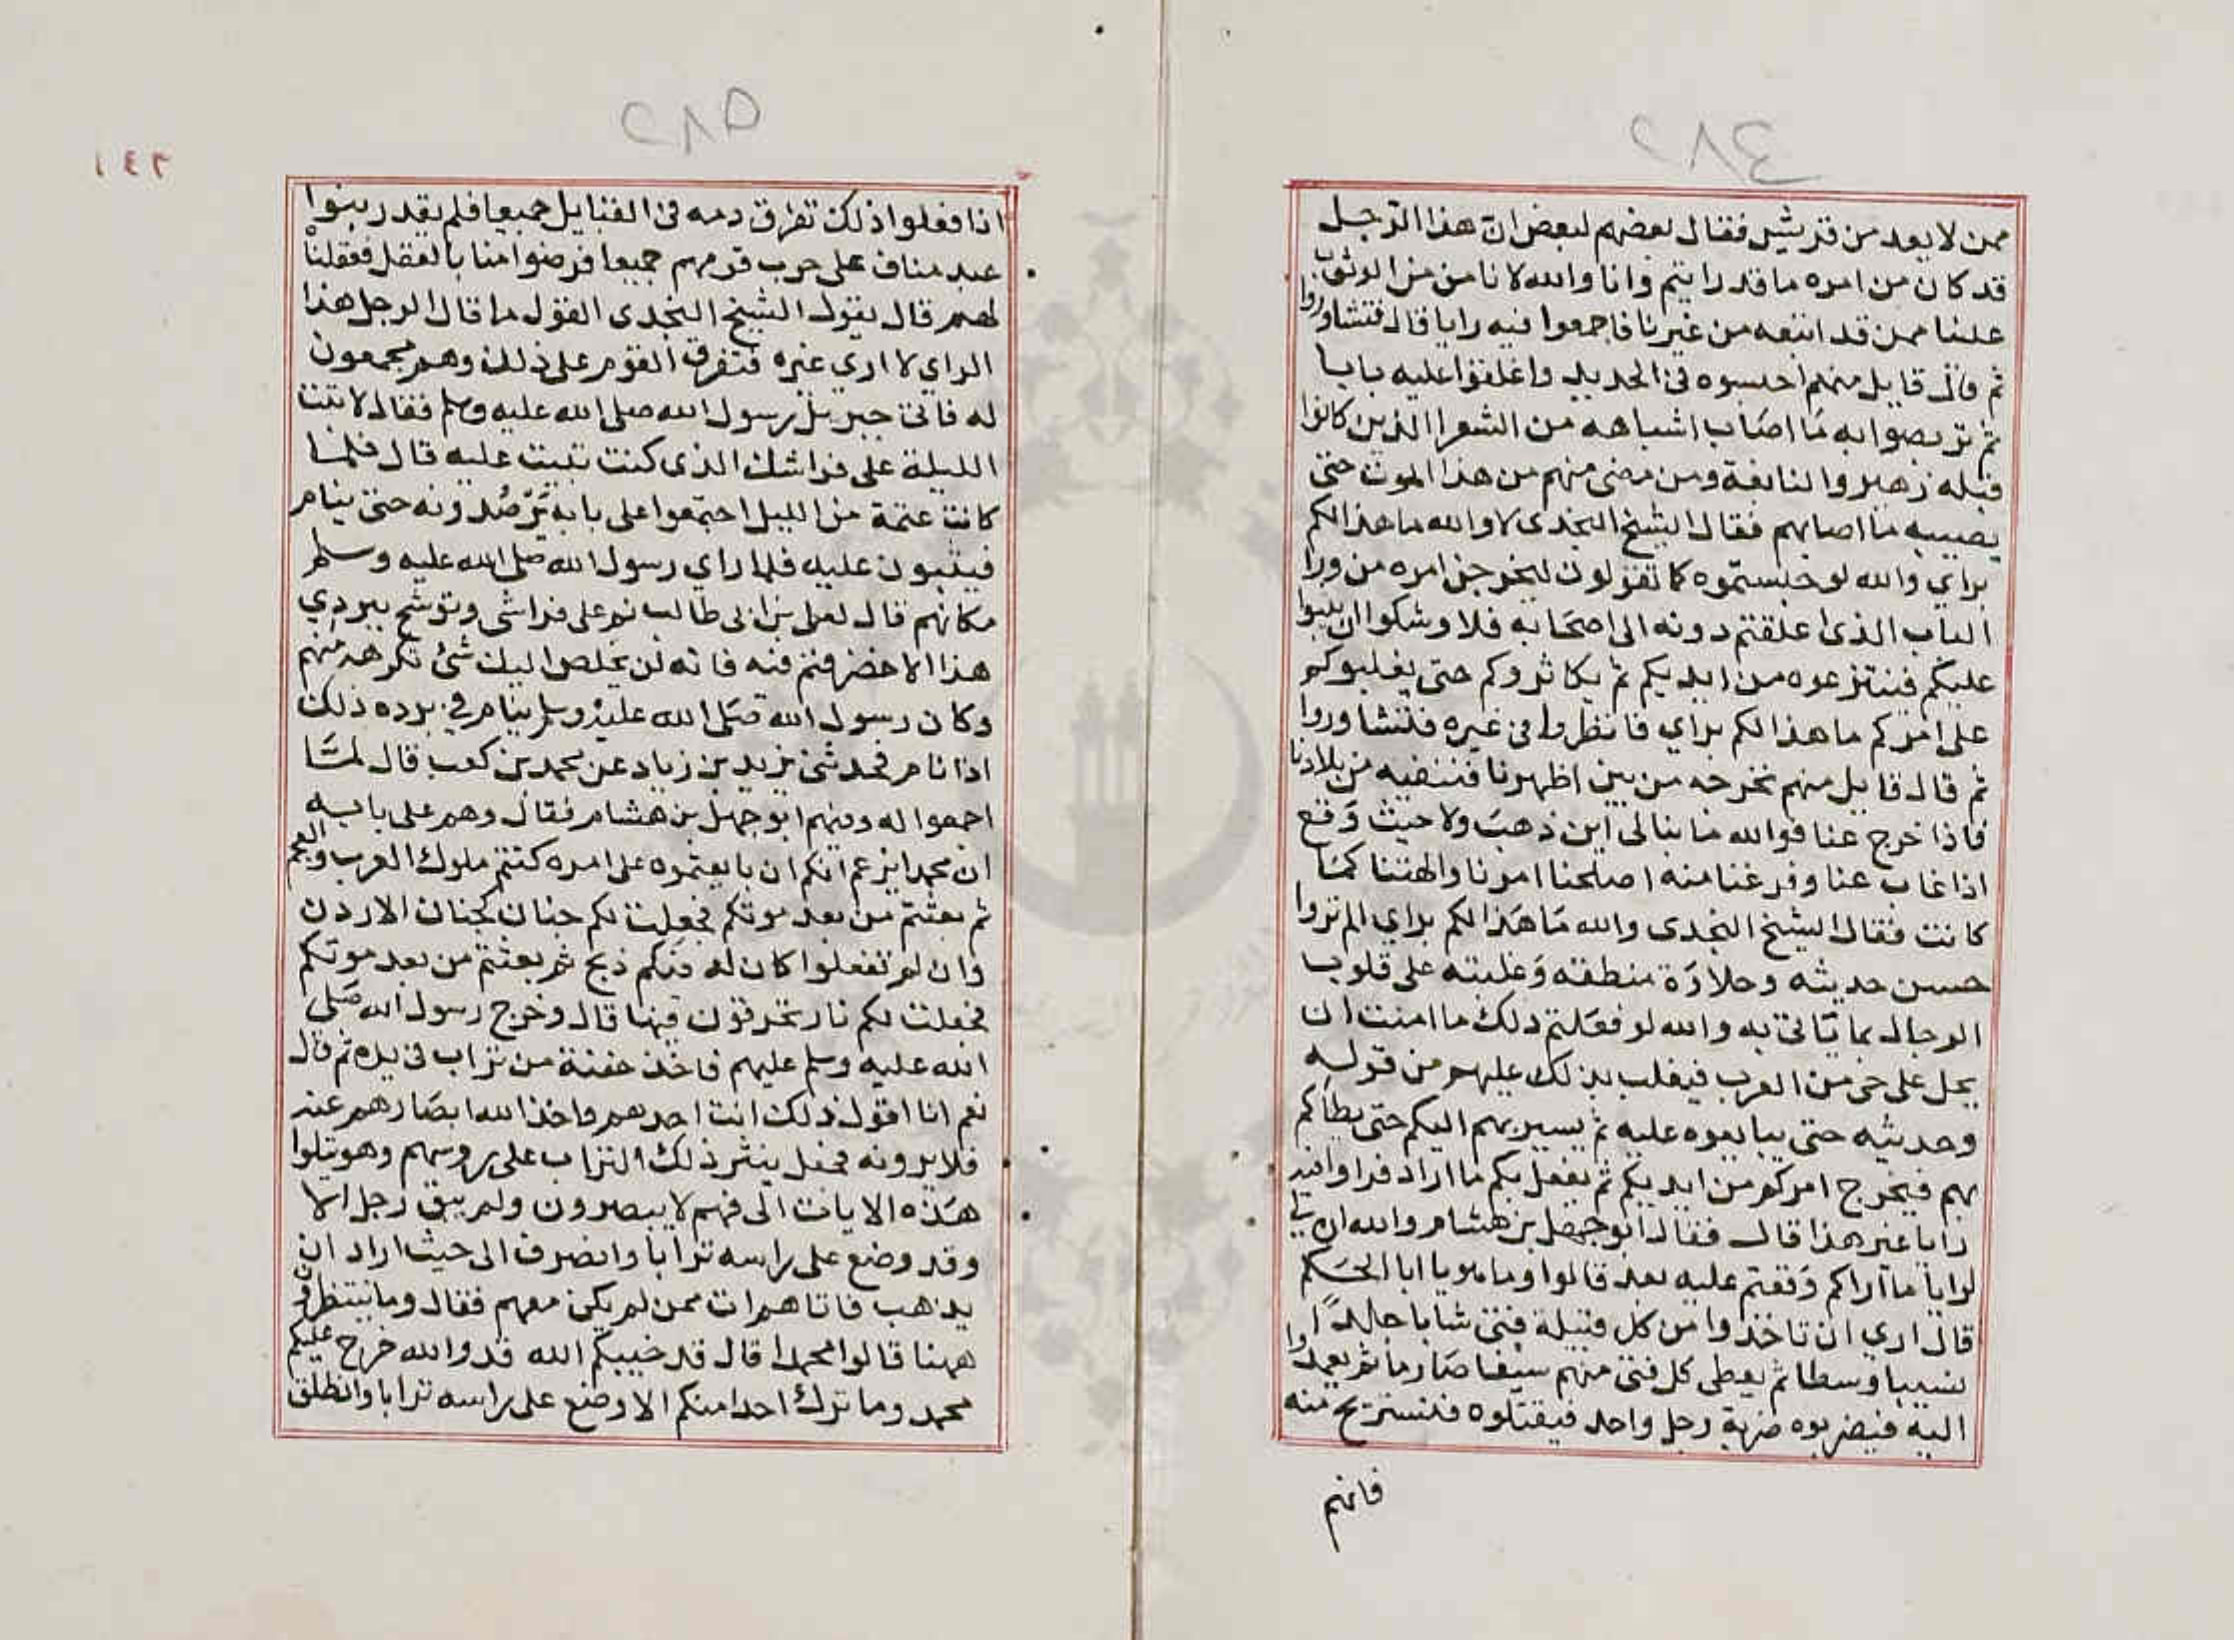 ٢٨٤
ممن لا يعد من قريش فقال بعضهم لبعض ان هذا الرجل
قد كان من امره ما قد رايتم وانا والله لا نامن من الوثوب
علينا ممن قد اتبعه من غيرنا فاجمعوا فيه رايا قال فتشاوروا
ثم قال قايل منهم احبسوه في الحديد واغلقوا عليه بابا
ثم تربصوا به مَا اصَاب اشباهه من الشعرا الذين كانوا
قبله زهير والنابغة ومن مضى منهم من هذا الموت حتى
يصيبه ما اصابهم فقال الشيخ النجدى لا والله ما هذا لكم
براي والله لو حبستموه كما تقولون ليخرجن امره من ورا
الباب الذى اغلقتم دونه الى اصحَابه فلا وشكوا ان يثبوا
عليكم فينتزعوه من ايديكم ثم يكاثروكم حتى يغلبوكم
على امركم ما هذا لكم براي فانظروا في غيره فتشاوروا
ثم قال قايل منهم نخرجه من بين اظهرنا فننفيه من بلادنا
فاذا خرج عنا فوالله ما نبالى اين ذهبَ ولا حيث وَقع
اذا غاب عنا وفرغنا منه اصلحنا امرنا والفتنا كمَا
كانت فقال الشيخ النجدى والله مَا هَذا لكم براي الم تروا
حسن حديثه وحلاوَة منطقه وَغلبته على قلوب
الرجال بما يَاتي به والله لو فعَلتم ذلك ما امنت ان
يحل على حى من العرب فيغلب بذلك عليهم من قوله
وحديثه حتى يبايعوه عليه ثم يسير بهم اليكم حتى يطاكم
بهم فيخرج امركم من ايديكم ثم يفعل بكم ما اراد فرا وافيه
رايا غير هذا قال فقال ابو جهل بن هشام والله ان لي
لرايا ما اراكم وَقعتم عليه بعد قالوا وما هو يا ابا الحَكم
قال اري ان تاخذوا من كل قبيلة فتى شابا جالدًا
نسيبا وسطا ثم يعطى كل فتى منهم سيفا صَارما ثم يعمدوا
اليه فيضربوه ضربة رجل واحد فيقتلوه فنستريح منه
فانهم
٢٨٥
١٤٢
اذا فعلوا ذلك تفرق دمه في القبايل جميعا فلم يقدر بنوا
عبد مناف على حرب قومهم جميعا فرضوا منا بالعقل فعقلناه
لهم قال يقول الشيخ النجدى القول ما قال الرجل هذا
الراي لا اري غيره فتفرق القوم على ذلك وهم مجمعون
له فاتى جبريل رسول الله صلى الله عليه وسلم فقال لا تبت
الليلة على فراشك الذى كنت تبيت عليه قال فلما
كانت عتمة من الليل اجتمعوا على بابه يَرْصُدونه حتى ينام
فيثبون عليه فلما راي رسول الله صلى الله عليه وسلم
مكانهم قال لعلى بن ابى طالب نم على فراشى وتوشح ببردي
هذا الاخضر فنم فيه فانه لن يخلص اليك شئ تكرهه منهم
وكان رسول الله صَلى الله عليه وسلم ينام في برده ذلك
اذا نام فحدثنى يزيد بن زياد عن محمد بن كعب قال لمَّا
اجمعوا له ومنهم ابو جهل بن هشام فقال وهم على بابه
ان محمدا يزعم انكم ان بايعتموه على امره كنتم ملوك العرب والعجم
ثم بعثتم من بعد موتكم فجعلت لكم جنان كجنان الاردن
وان لم تفعلوا كان له فيكم ذبح ثم بعثتم من بعد موتكم
فجعلت لكم نار تحرقون فيها قال وخرج رسول الله صَلى
الله عليه وسلم عليهم فاخذ حفنة من تراب في يده ثم قال
نعم انا اقول ذلك انت احدهم واخذ الله ابصَارهم عنه
فلا يرونه فجعل ينثر ذلك التراب على روسهم وهو يتلوا
هَذه الايات الى فهم لا يبصرون ولم يبق رجل الا
وقد وضع على راسه ترابا وانصرف الى حيث اراد ان
يذهب فاتاهم ات ممن لم يكن معهم فقال وما تنتظرون
ههنا قالوا محمدا قال قد خيبكم الله قد والله خرج عليكم
محمد وما ترك احدا منكم الا وضع على راسه ترابا وانطلق